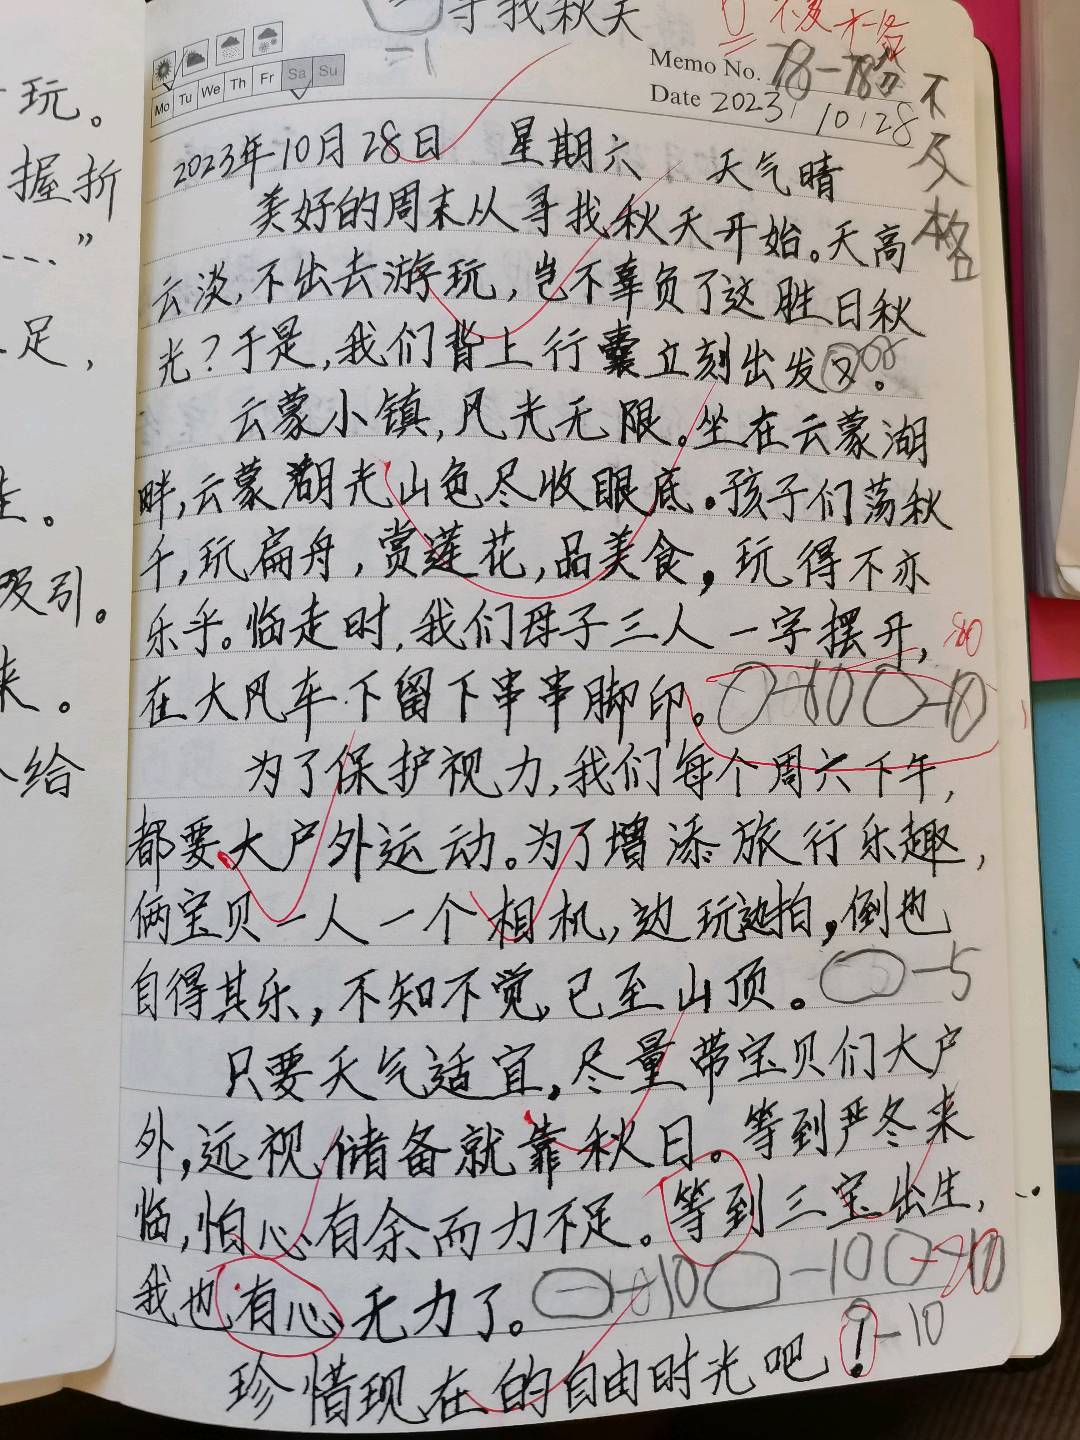 寻找秋天
=1
0
Mo Tu We Th Fr Sa Su
Memo No. 78-78
Date 2023 10 28
不及格
2023年10月28日 星期六 天气晴
美好的周末从寻找秋天开始。天高
云淡,不出去游玩,岂不辜负了这胜日秋
光?于是,我们背上行囊立刻出发
云蒙小镇,风光无限。坐在云蒙湖
畔,云蒙湖光山色尽收眼底。孩子们荡秋
千,玩扁舟,赏莲花,品美食,玩得不亦
乐乎。临走时,我们母子三人一字摆开,
在大风车下留下串串脚印。 -10 -10
为了保护视力,我们每个周六下午,
都要大户外运动。为了增添旅行乐趣,
俩宝贝一人一个相机,边玩边拍,倒也
自得其乐,不知不觉,已至山顶。 -5
只要天气适宜,尽量带宝贝们大户
外,远视储备就靠秋日。等到严冬来
临,怕心有余而力不足。等到三宝出生,
我也有心无力了。 -10 -10 -10
珍惜现在的自由时光吧! -10
玩。
握折
……”
足,
。
吸引。
来。
给